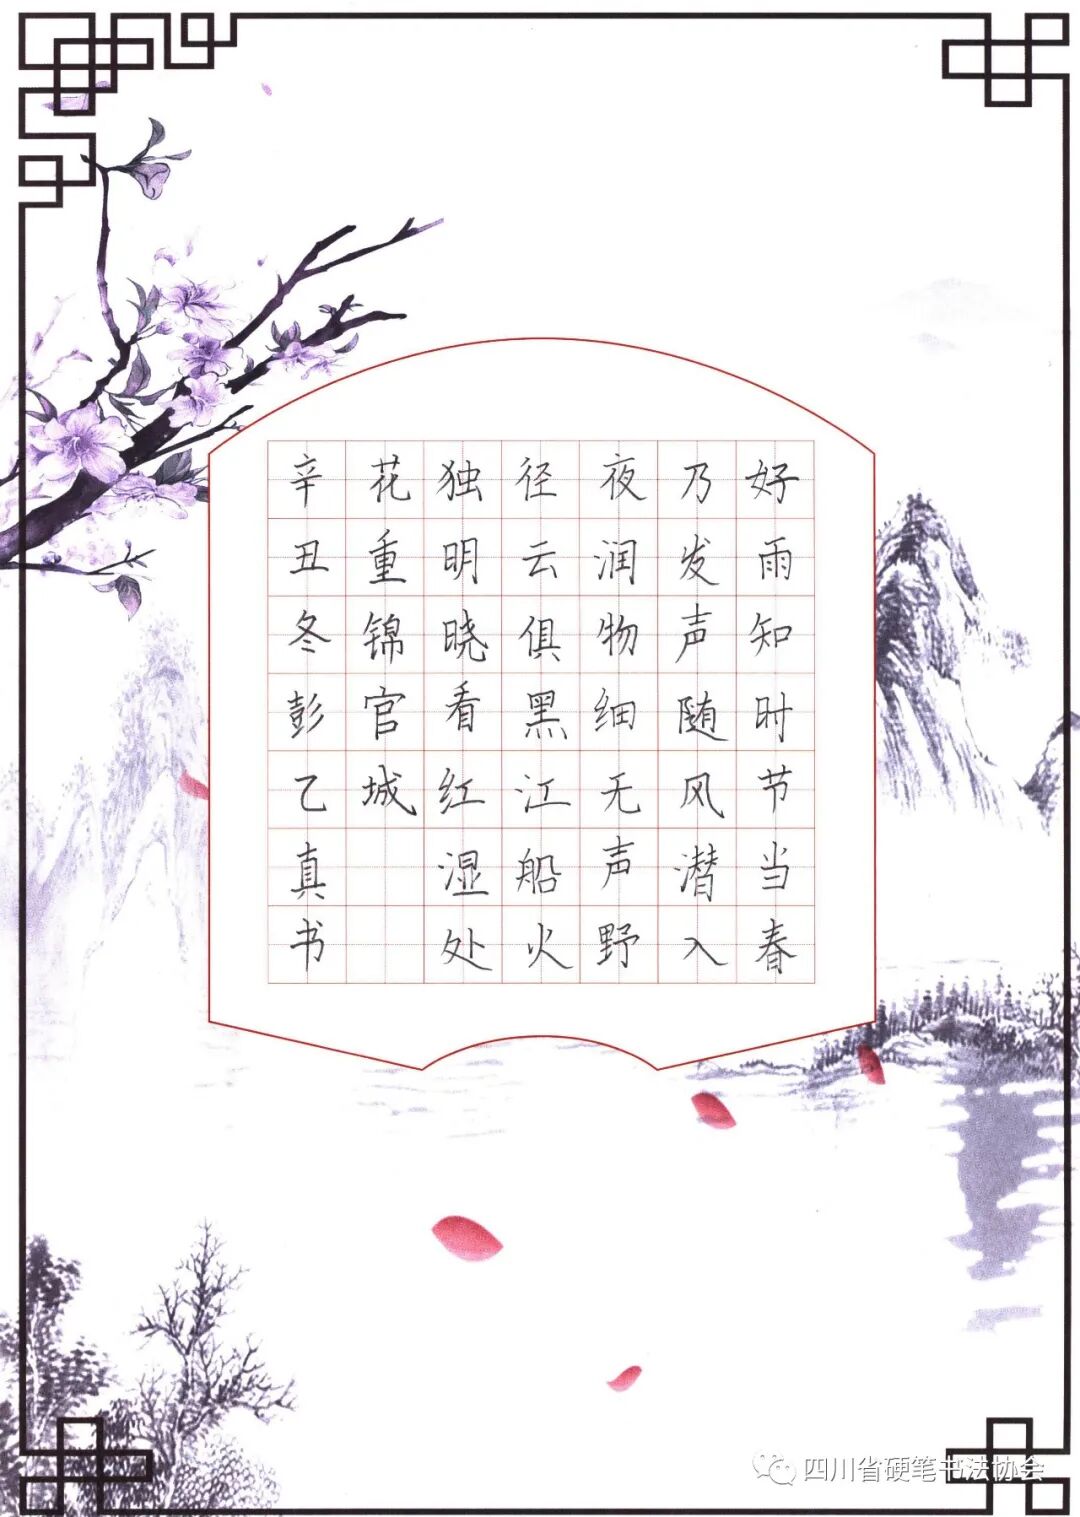 好雨知时节当春
乃发声随风潜入
夜润物细无声野
径云俱黑江船火
独明晓看红湿处
花重锦官城
辛丑冬彭乙真书
四川省硬笔书法协会